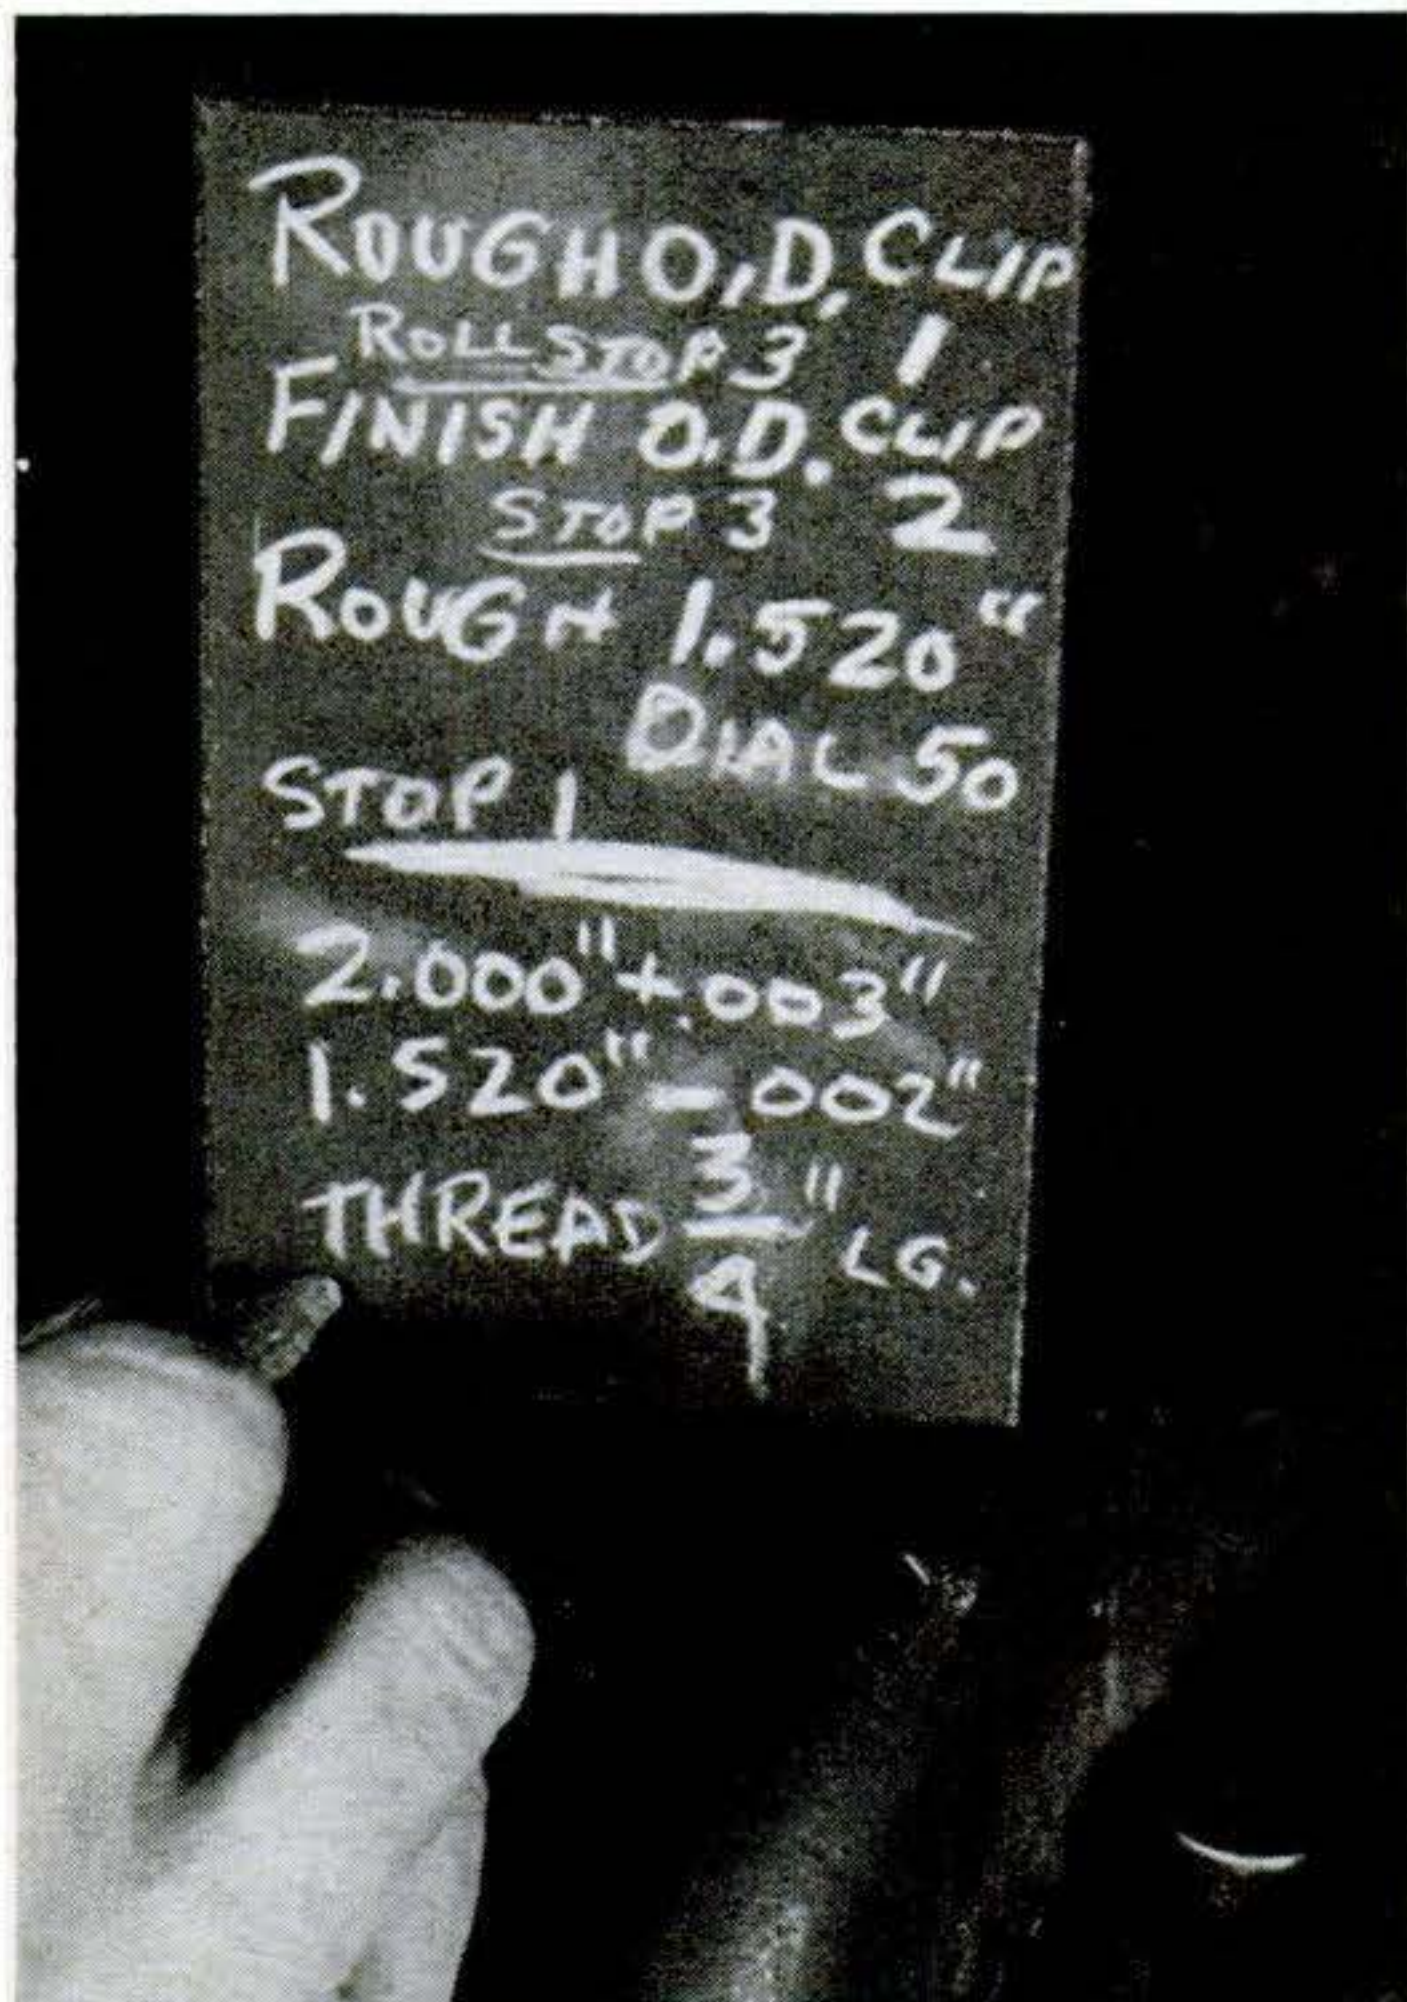 ROUGH O.D. CLIP
ROLL STOP 3 1
FINISH O.D. CLIP
STOP 3 2
ROUGH 1.520"
DIAL 50
STOP 1
2.000" + .003"
1.520" - 002"
THREAD 3/4" LG.